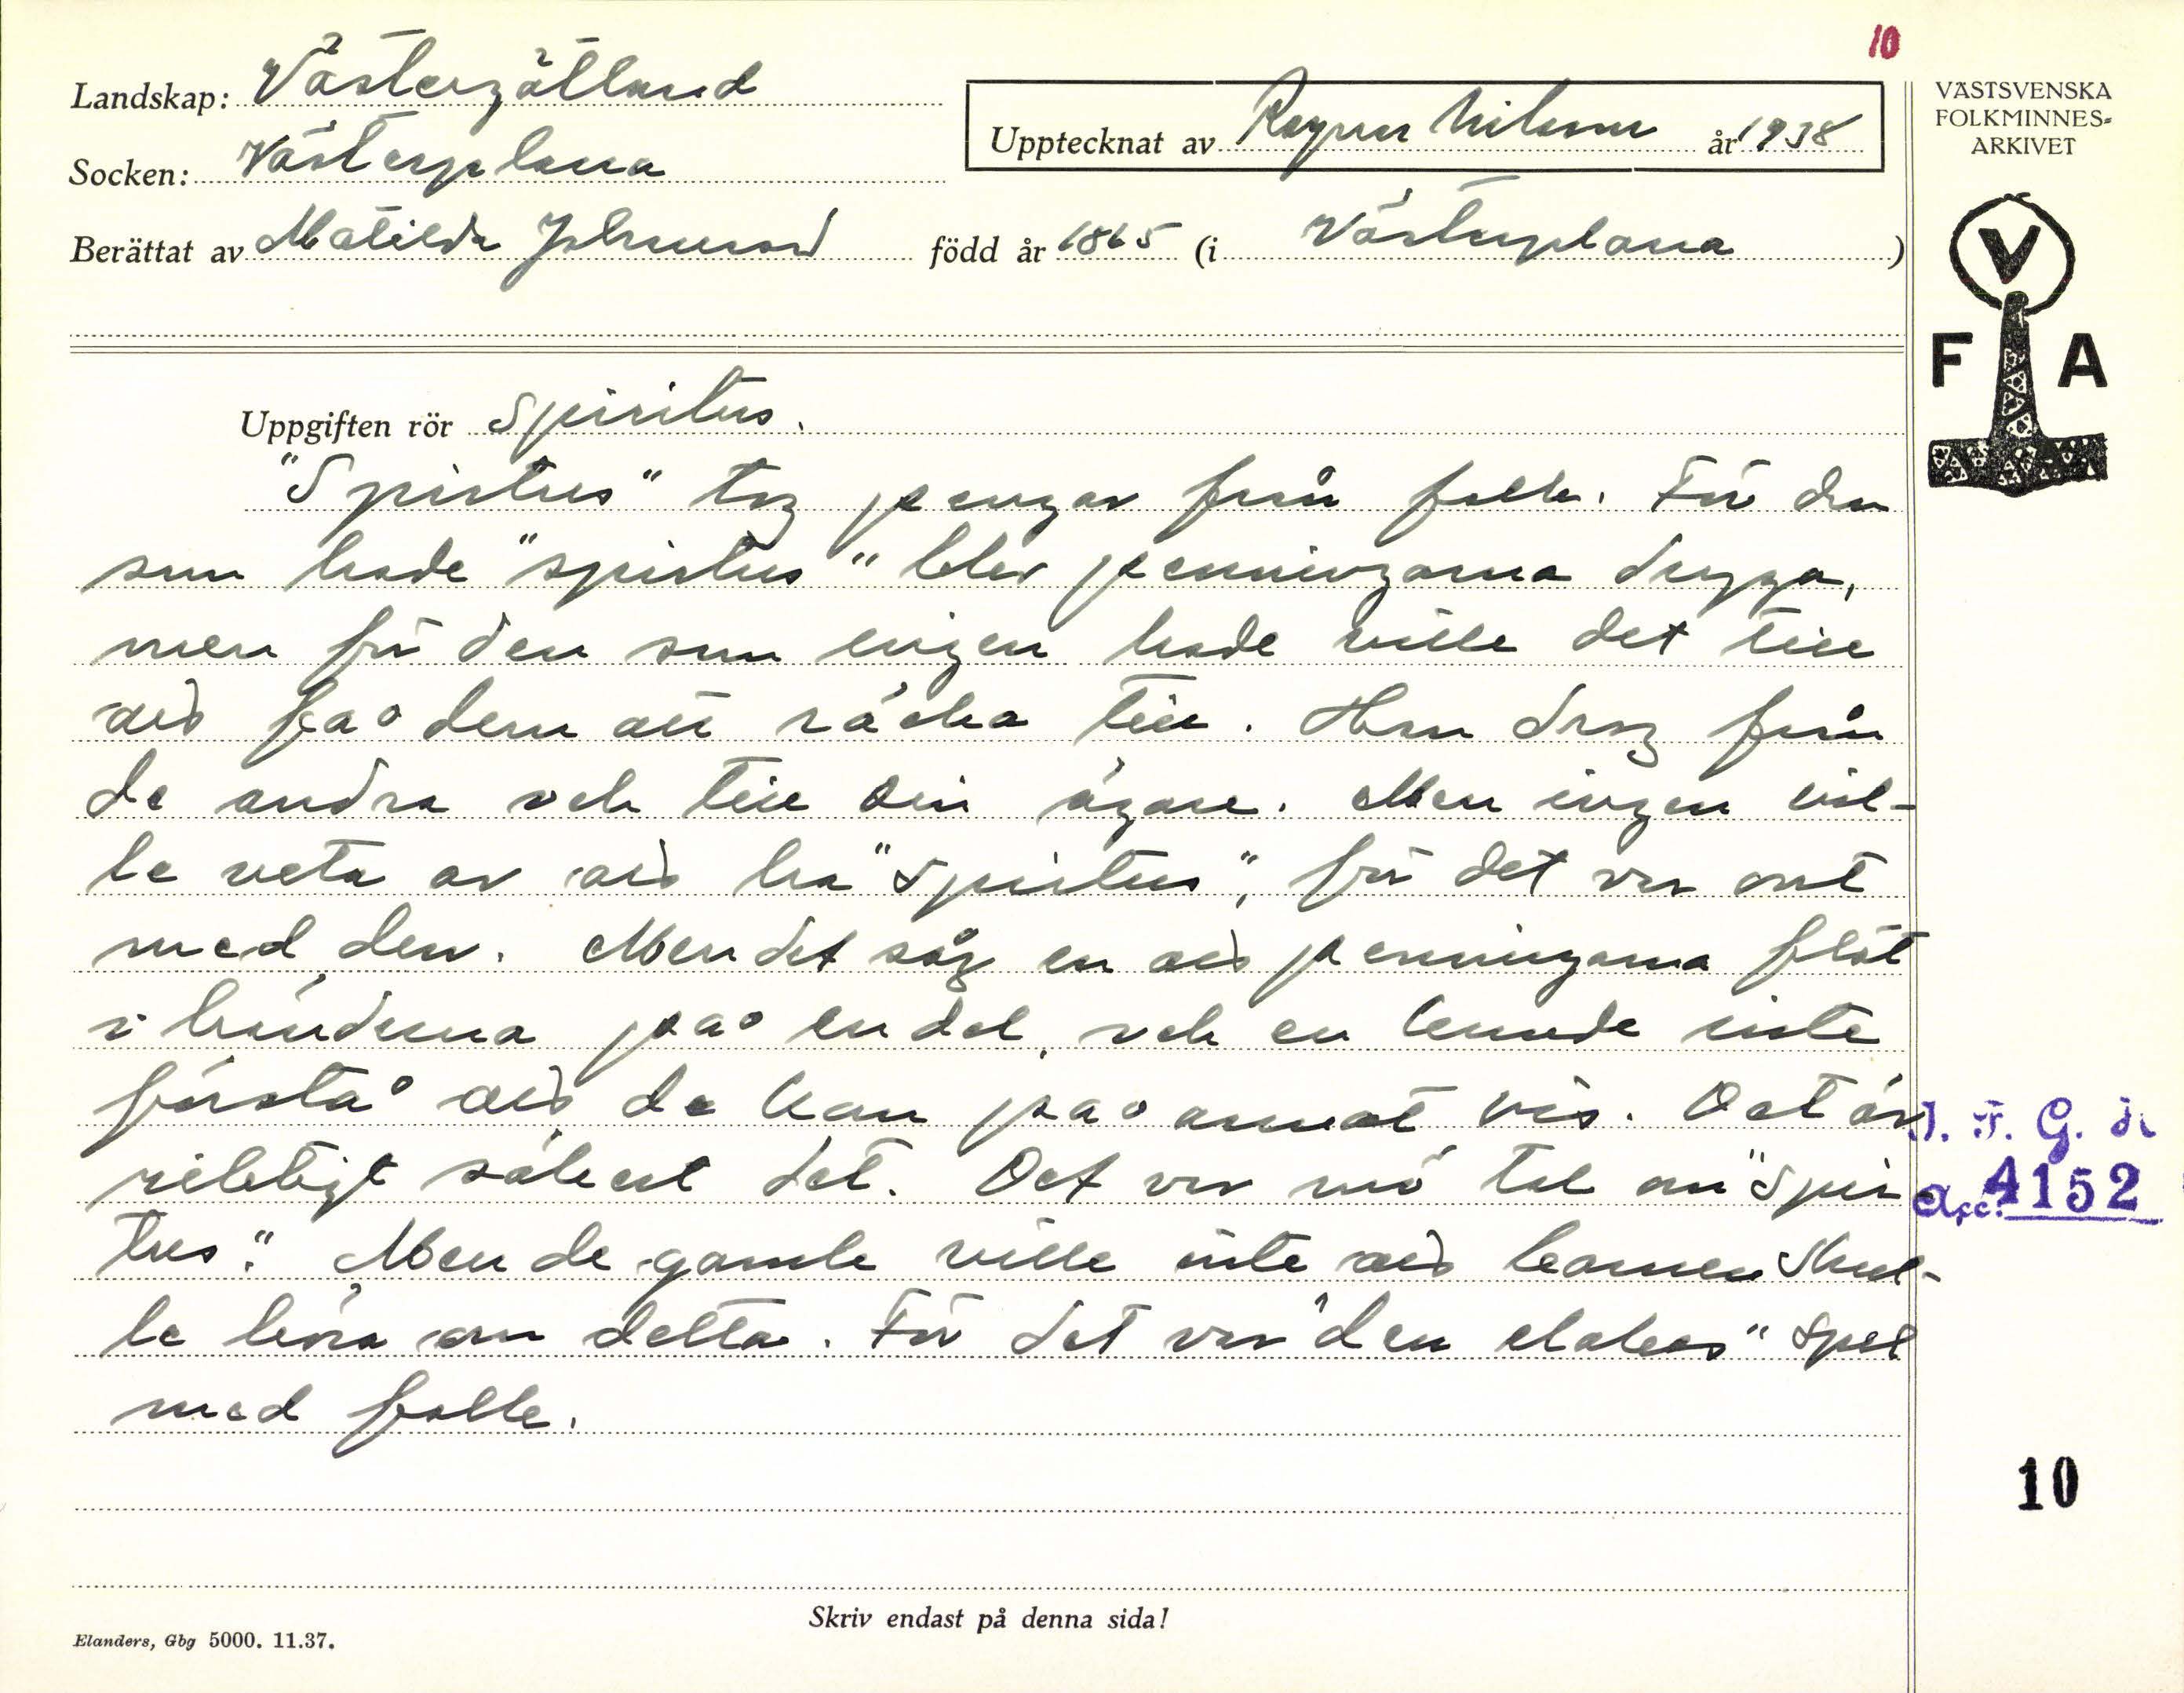 10
Landskap: Västergötland
Socken: Västerplana
Upptecknat av Ragnar Nilsson år 1938
Berättat av Matilda Johansson född år 1865 (i Västerplana)
VÄSTSVENSKA
FOLKMINNES-
ARKIVET
V
F A
Uppgiften rör Spiritus.
"Spirtus" tog pengar från folk. För den
som hade "spirtus" blev penningarna dryga,
men för den som ingen hade ville det till
att få dem att räcka till. Han drog från
de andra och till sin ägare. Men ingen vil-
le veta av att ha "Spirtus", för det var ont
med den. Men det såg en att penningarna flöt
i händerna på en del, och en kunde inte
förstå att de kan på annat vis. Det är
riktigt säkert det. Det var mö tal om "Spir-
tus". Men de gamle ville inte att barnen skul-
le höra om detta. För det var "den elakes" spel
med folk.
I. F. G. nr
Acc. 4152
10
Skriv endast på denna sida!
Elanders, Gbg 5000. 11.37.